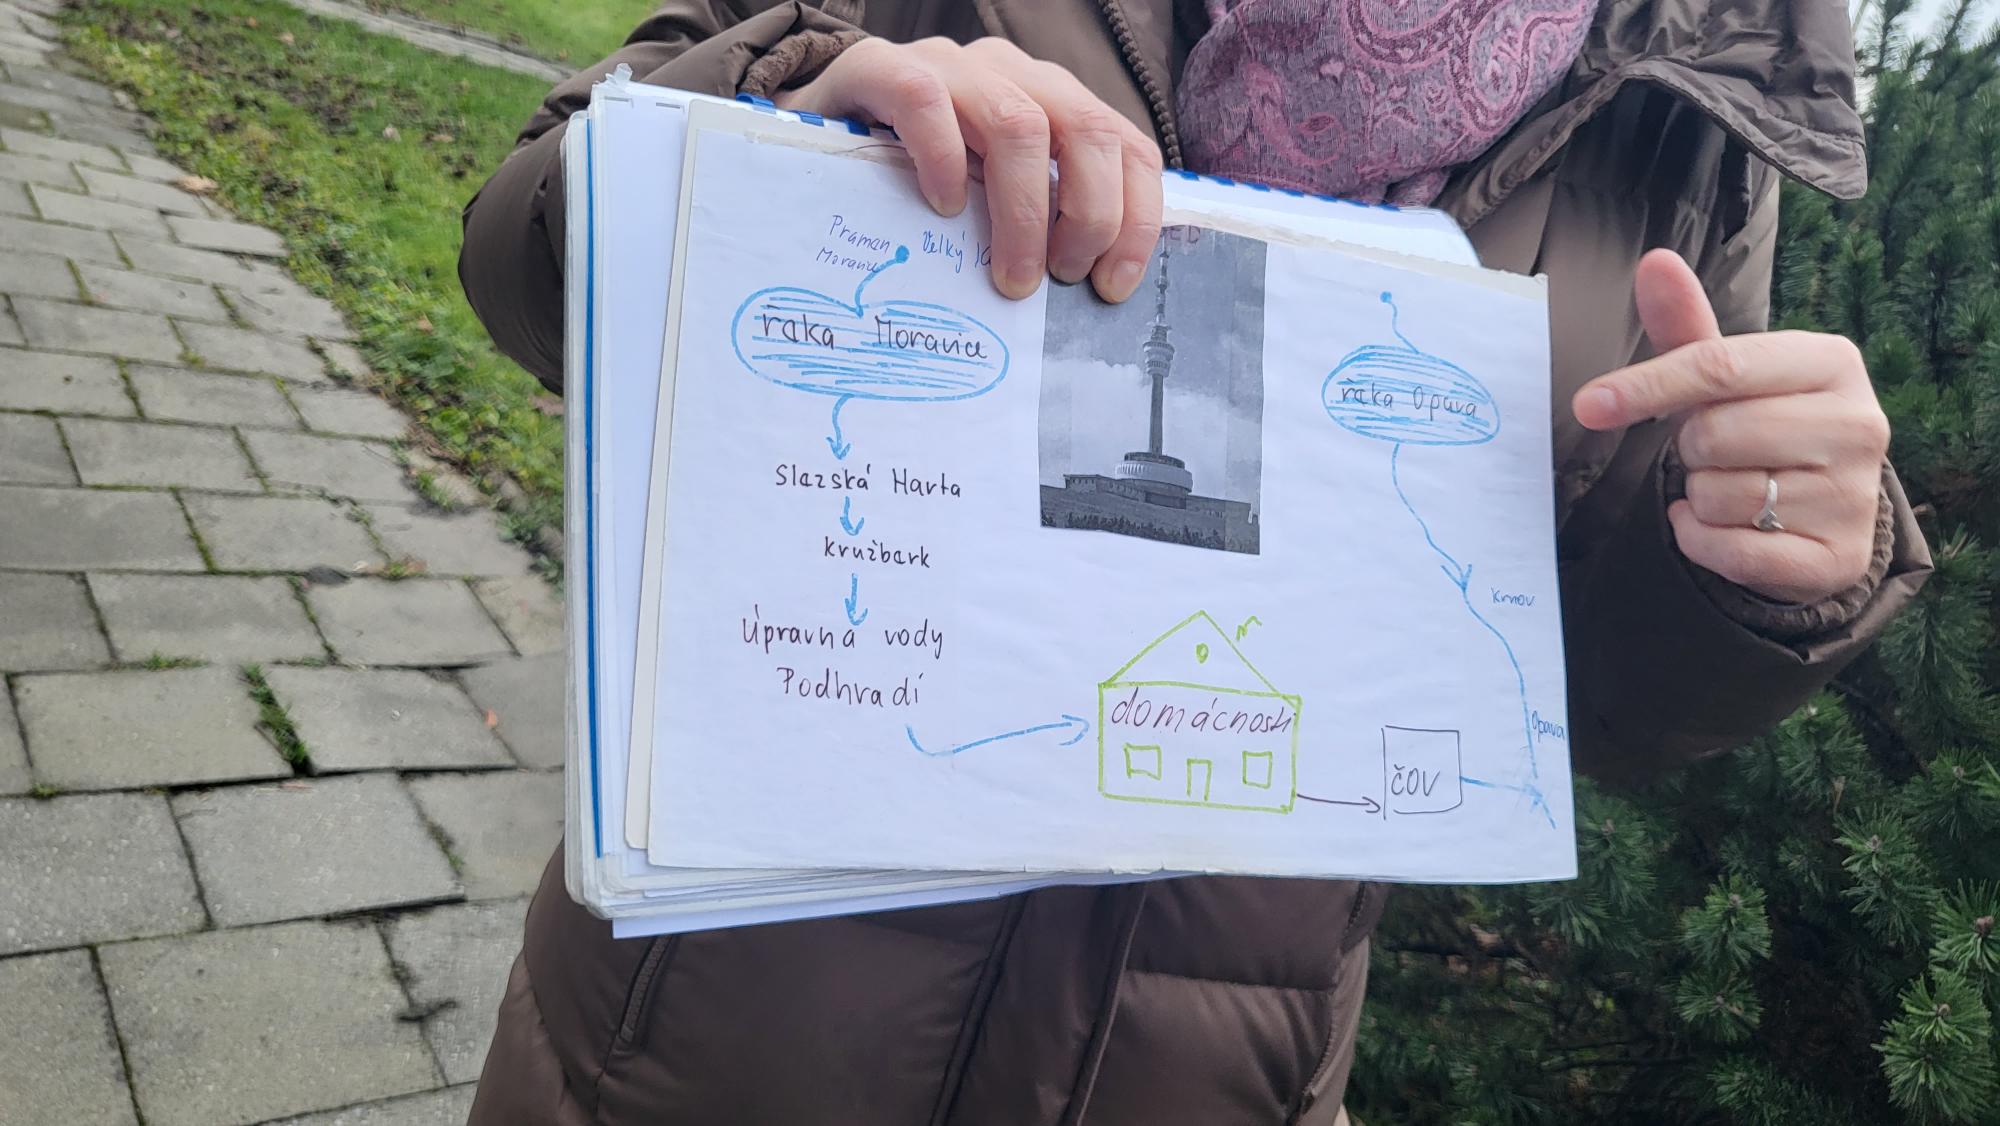 Pramen
Moravice
Velký
řeka Moravice
Slezská Harta
Kružberk
Úpravna vody
Podhradí
domácnosti
ČOV
řeka Opava
Krnov
Opava